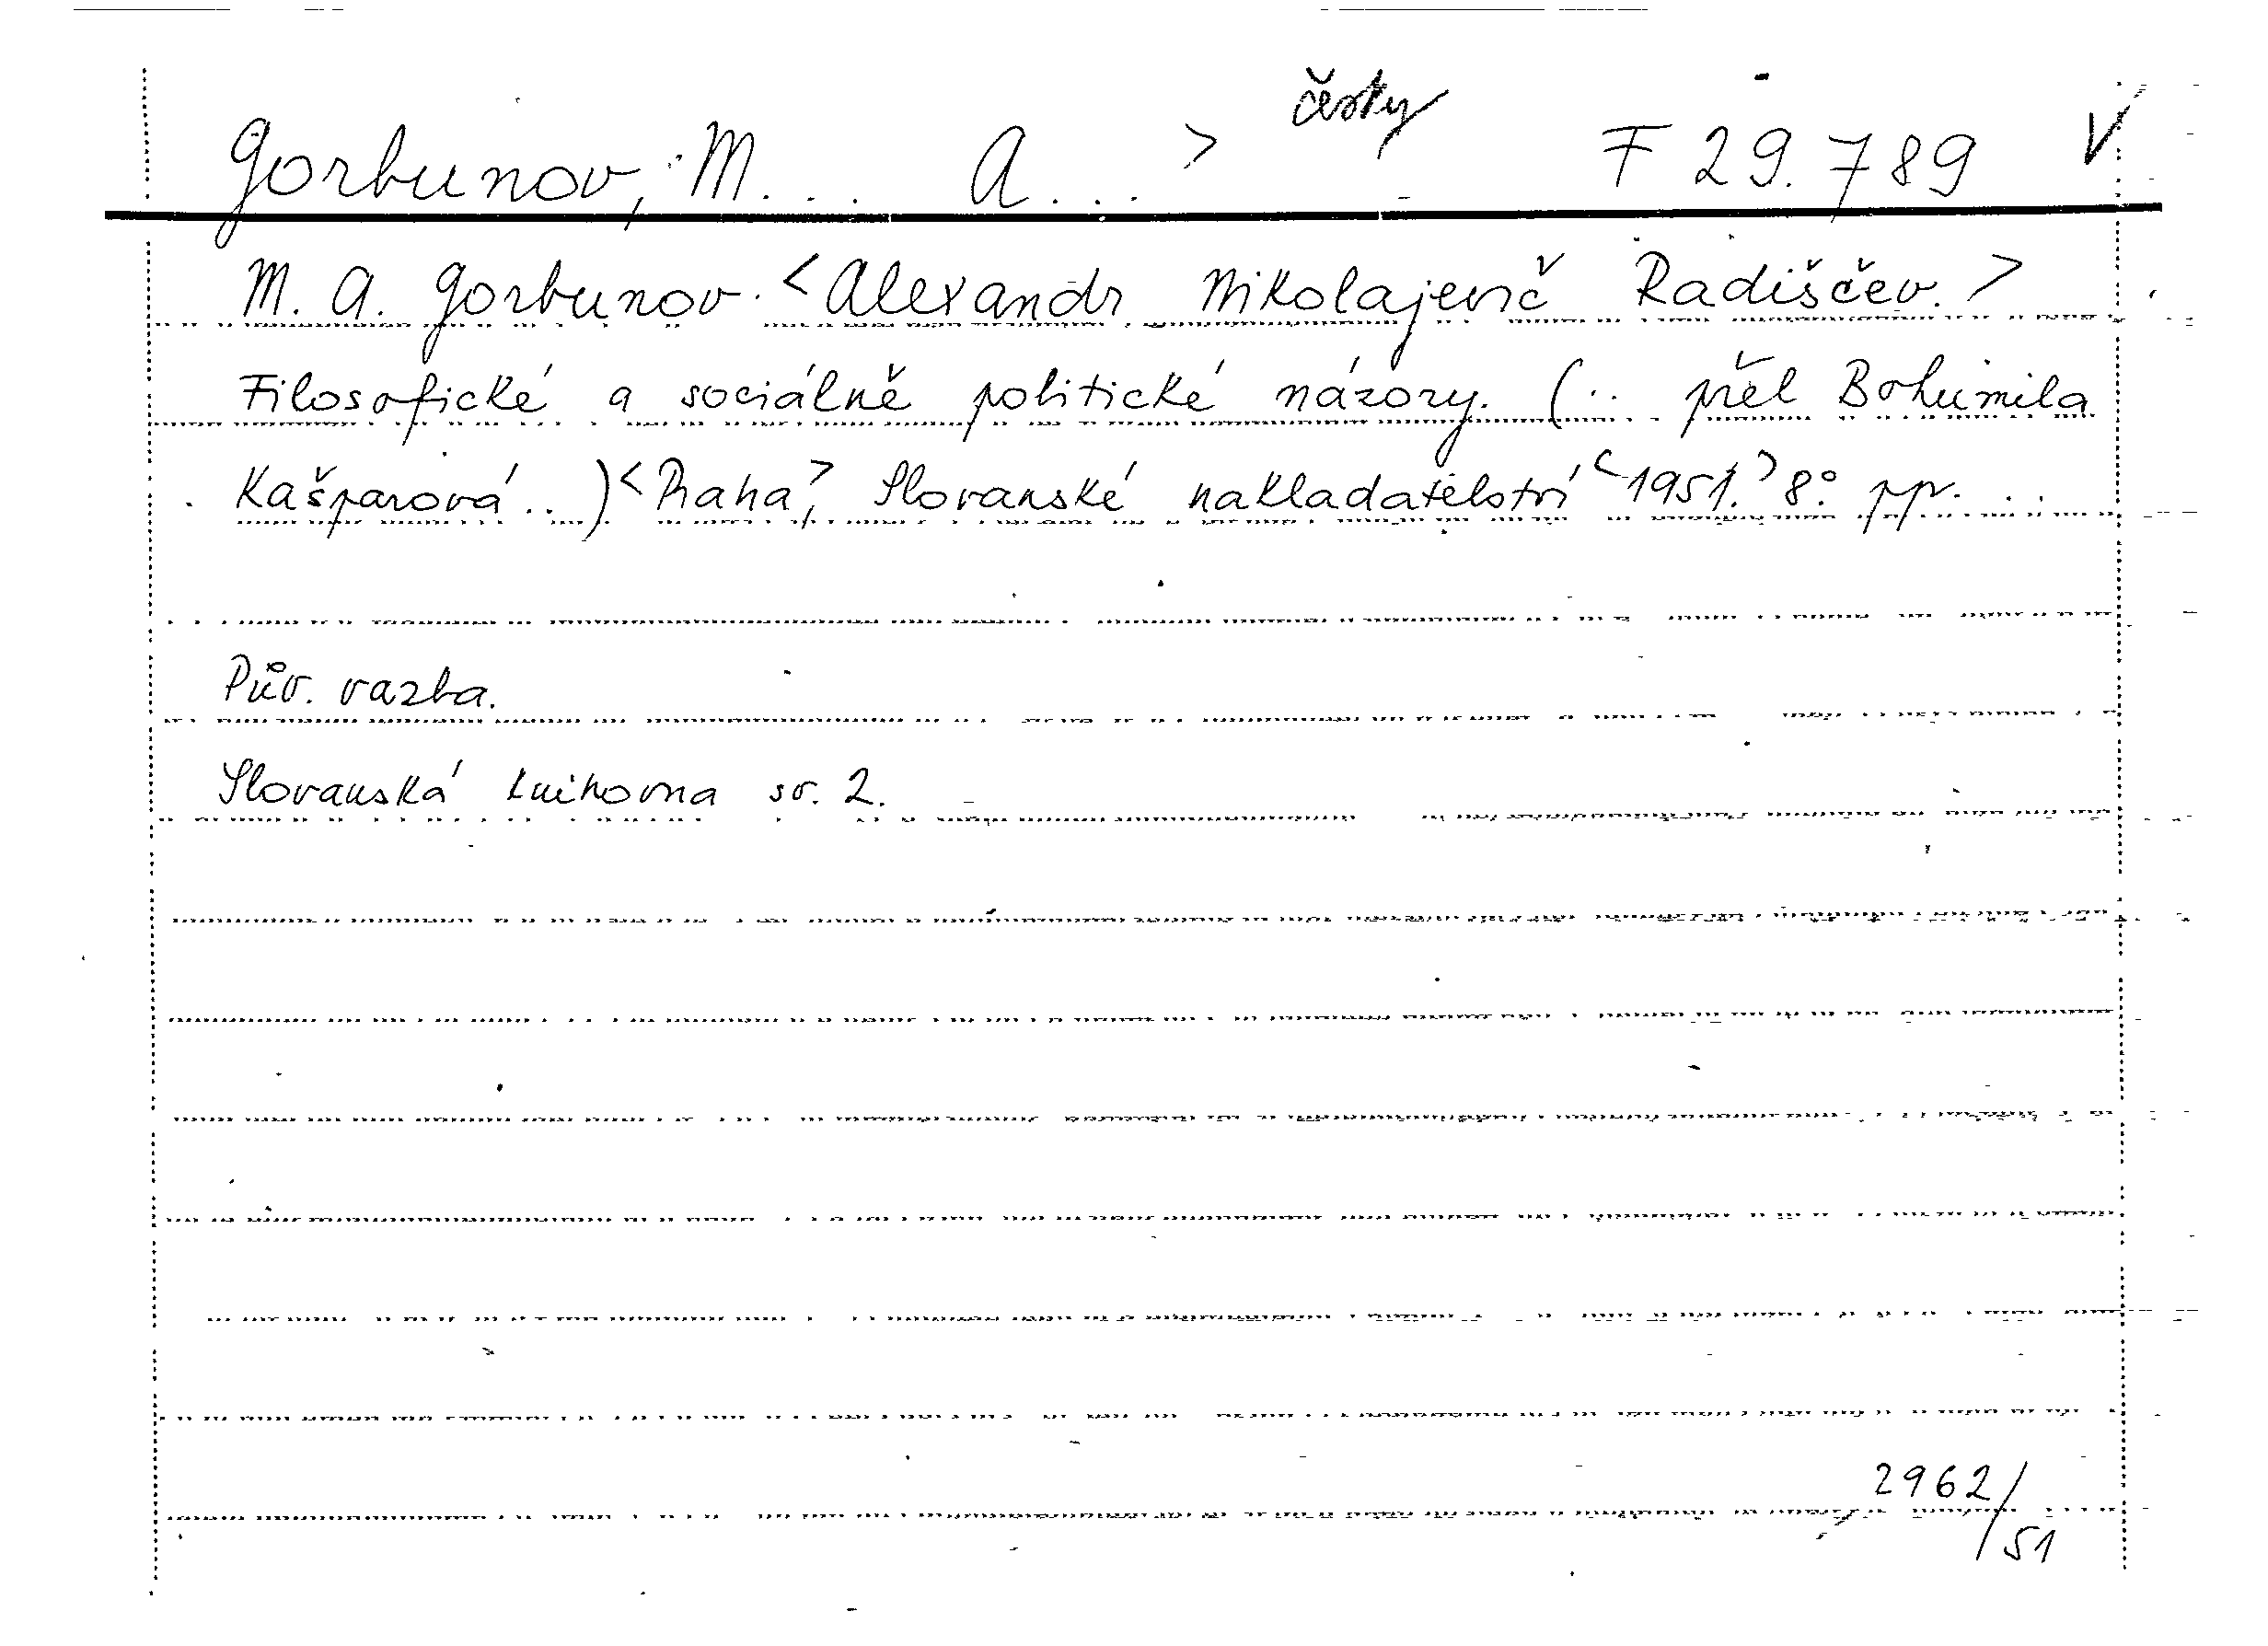 česky
Gorbunov, M... A...> F 29.789 V
M. A. Gorbunov. <Alexandr Nikolajevič Radiščev.>
Filosofické a sociálně politické názory. (.. přel Bohumila
Kašparová ..) <Praha>, Slovanské nakladatelství <1951.> 8° pp. ..
Pův. vazba.
Slovanská knihovna sv. 2.
2962/
51